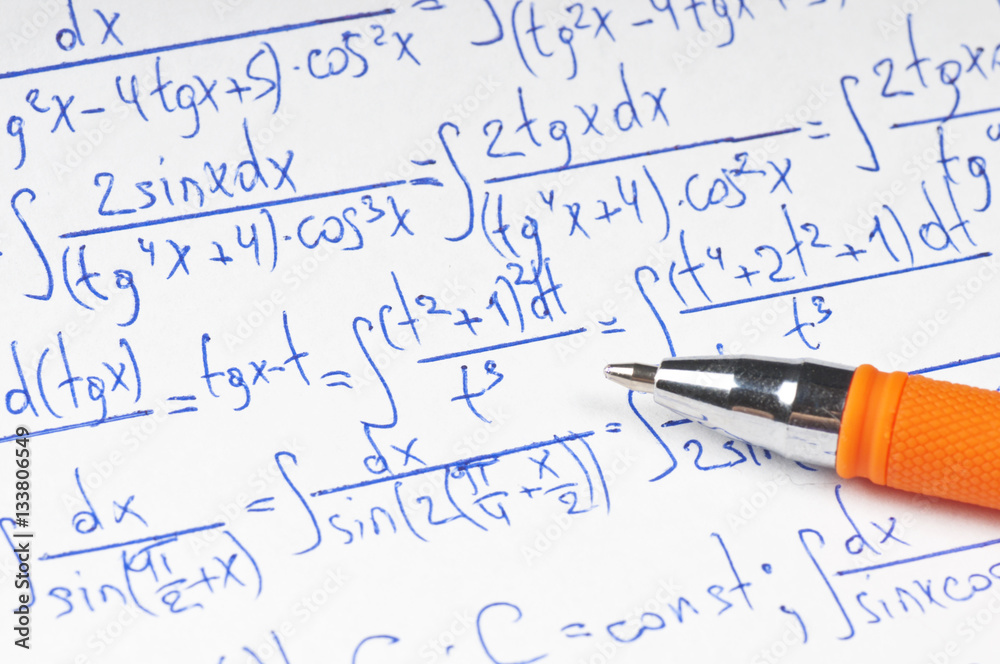 dx / g²x - 4tgx + 5) · cos²x = ∫ (tg²x - 4tgx +
∫ 2sinxdx / (tg⁴x + 4) · cos³x = ∫ 2tgxdx / (tg⁴x + 4) · cos²x = ∫ 2tgx / tg
d(tgx) = tgx - t = ∫ (t² + 1)²dt / t³ = ∫ (t⁴ + 2t² + 1)dt / t³
∫ dx / sin(π/2 + x) = ∫ dx / sin(2(π/4 + x/2)) = ∫ / 2sin
C = const; ∫ dx / sinxcos
Adobe Stock | #133806549